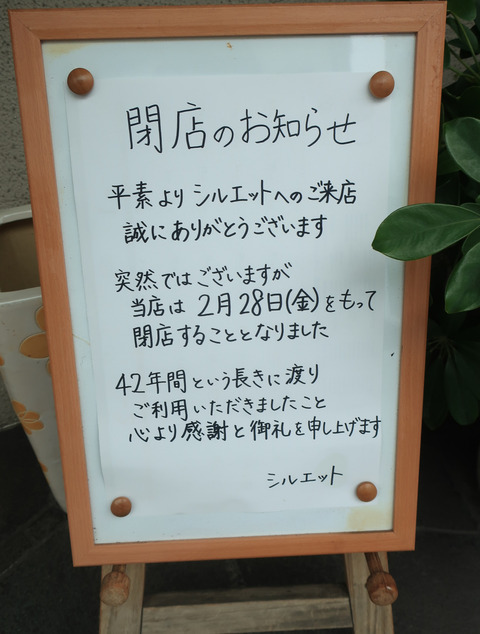 閉店のお知らせ
平素よりシルエットへのご来店
誠にありがとうございます
突然ではございますが
当店は2月28日(金)をもって
閉店することとなりました
42年間という長きに渡り
ご利用いただきましたこと
心より感謝と御礼を申し上げます
シルエット